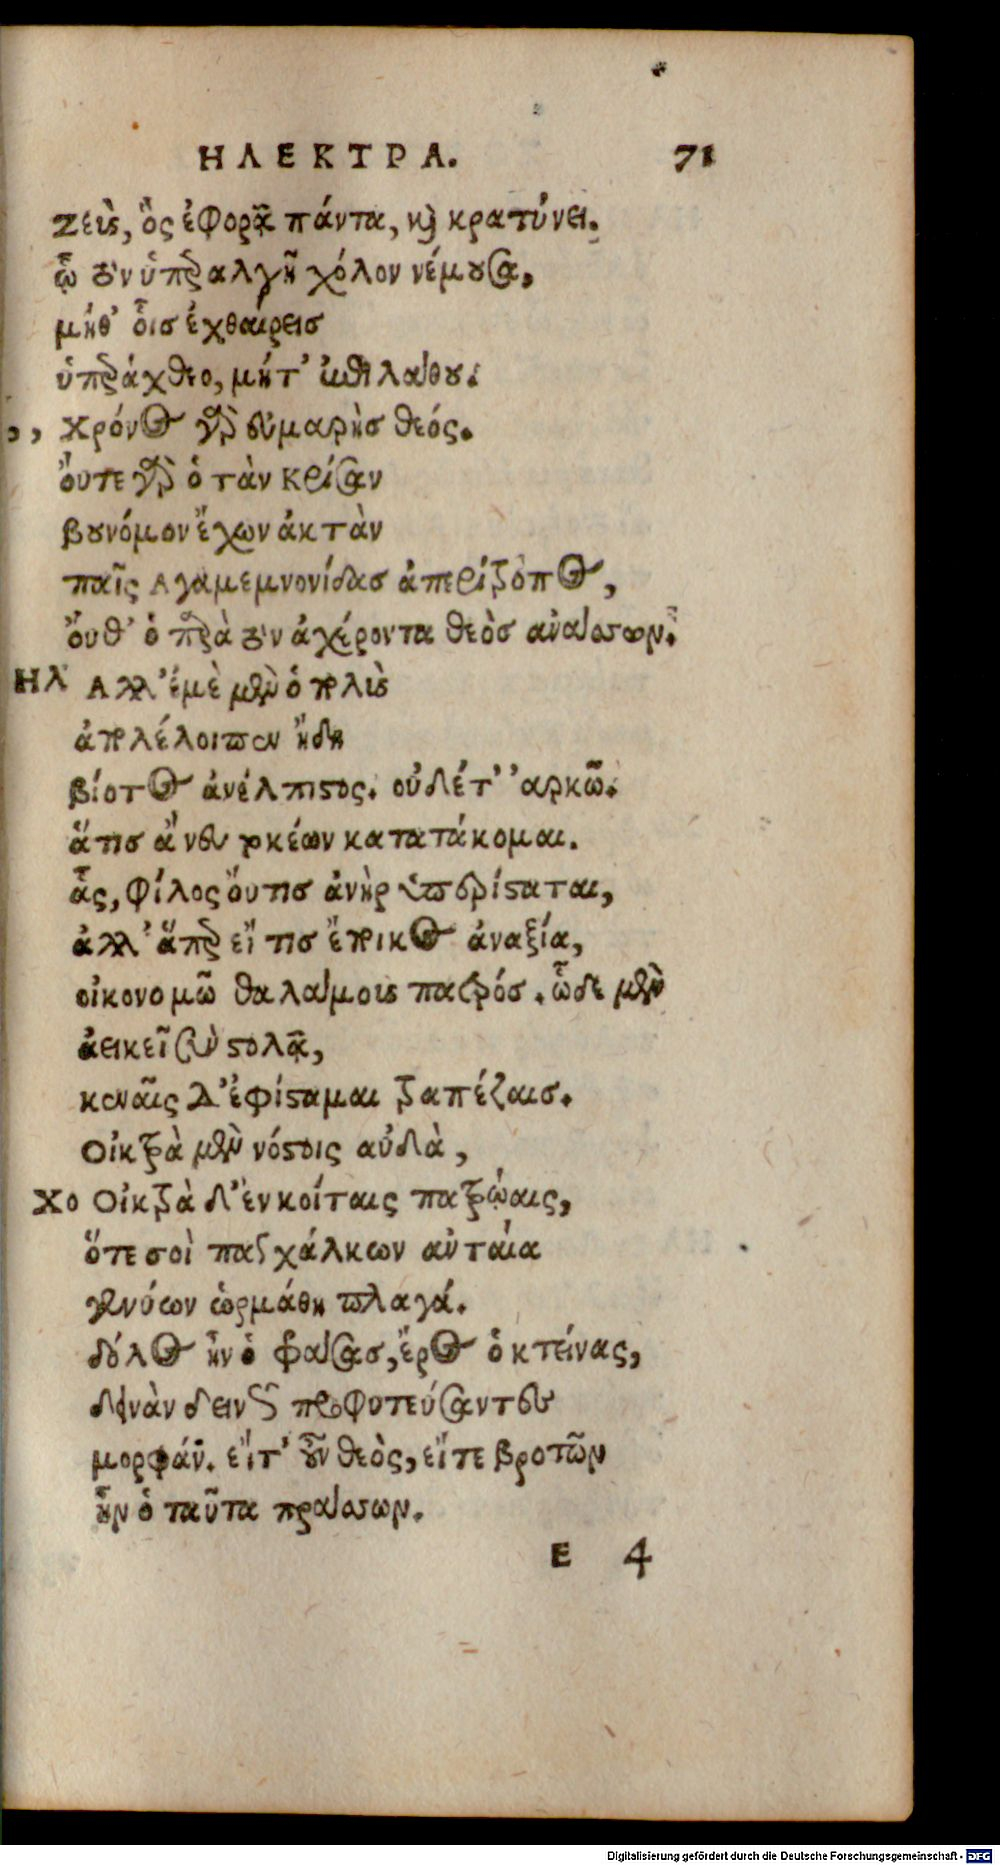 ΗΛΕΚΤΡΑ. 71
Ζεὺς, ὃς ἐφορᾷ πάντα, καὶ κρατύνει.
ᾧ τὸν ὑπεραλγῆ χόλον νέμουσα,
μήθ' οἷσ ἐχθαίρεισ
ὑπεράχθεο, μήτ' ἐπιλάθου.
,, Χρόνος γὰρ εὐμαρὴσ θεός.
οὔτε γὰρ ὁ τὰν Κρίσαν
βουνόμον ἔχων ἀκτὰν
παῖς Αγαμεμνονίδασ ἀπερίτροπος,
οὔθ' ὁ παρὰ τὸν ἀχέροντα θεὸσ ἀνάσσων.
ΗΛ Αλλ' ἐμὲ μὲν ὁ πολὺς
ἀπολέλοιπεν ἤδη
βίοτος ἀνέλπιστος. οὐδέτ' ἀρκῶ.
ἅτισ ἄνευ τοκέων κατατάκομαι.
ἇς, φίλος οὔτισ ἀνὴρ ὑπερίσταται,
ἀλλ' ἅπερ εἴ τισ ἔποικος ἀναξία,
οἰκονομῶ θαλάμοις πατρόσ. ὧδε μὲν
ἀεικεῖ σὺν στολᾷ,
κεναῖς δ' ἐφίσταμαι τραπέζαισ.
Οἰκτρὰ μὲν νόστοις αὐδὰ,
ΧΟ Οἰκτρὰ δ' ἐν κοίταις πατρῴαις,
ὅτε σοὶ παγχάλκων ἀνταία
γενύων ὡρμάθη πλαγά.
δόλος ἦν ὁ φράσασ, ἔρος ὁ κτείνας,
δεινὰν δεινῶς προφυτεύσαντες
μορφάν. εἴτ' οὖν θεὸς, εἴτε βροτῶν
ἦν ὁ ταῦτα πράσσων.
E 4
Digitalisierung gefördert durch die Deutsche Forschungsgemeinschaft - DFG